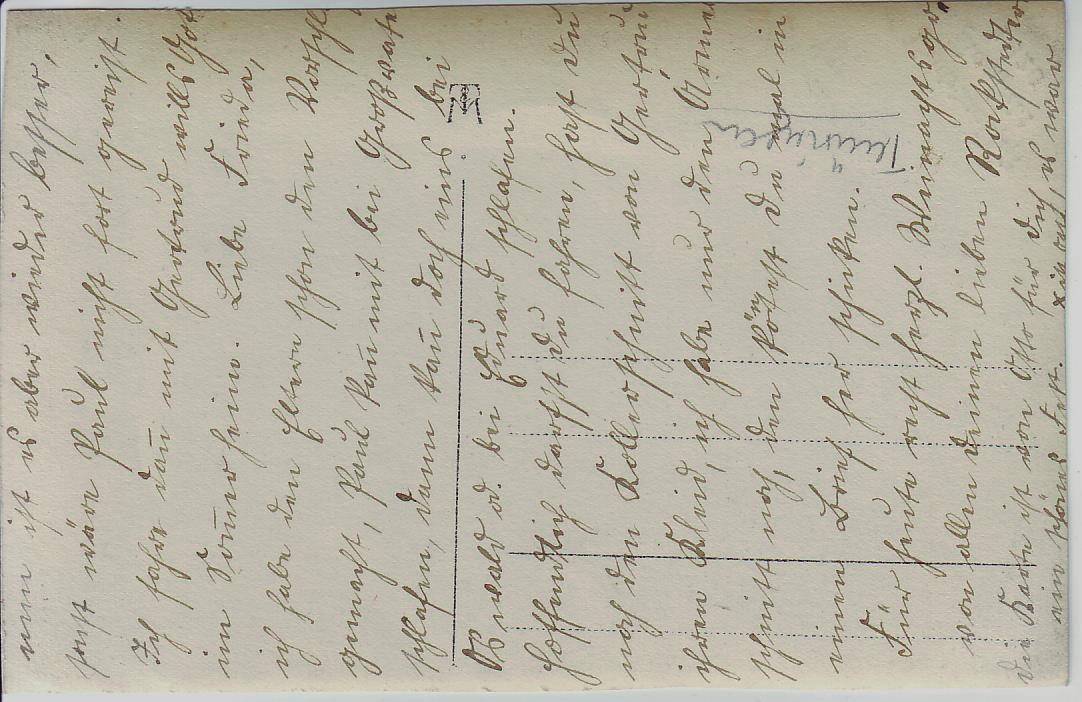 nun ist es aber wieder besser,
sonst wäre Paul nicht fort gereist
Ich fahre dan̄ mit Gertrud wills Gott
im Som̄er heim. Liebe Frieda,
ich habe den Eltern schon den Vorschl
gemacht, Paul kan̄ mit bei Großvate
schlafen, dann kan̄ doch eins bei
Oswald od. bei Eduard schlafen.
Hoffendlich darfst du fahren, hast du
noch den Kollerschnitt von Gertrud
ihren Kleid, ich habe nur den Ärmel
schnitt noch, den kön̄test du mal in
einen Brief her schicken.
Für heute recht herzl. Weinachtsgr.
von allen deinen lieben
Die Karte ist von Otto für dich es war
ein schönes Fest.
Thüringen